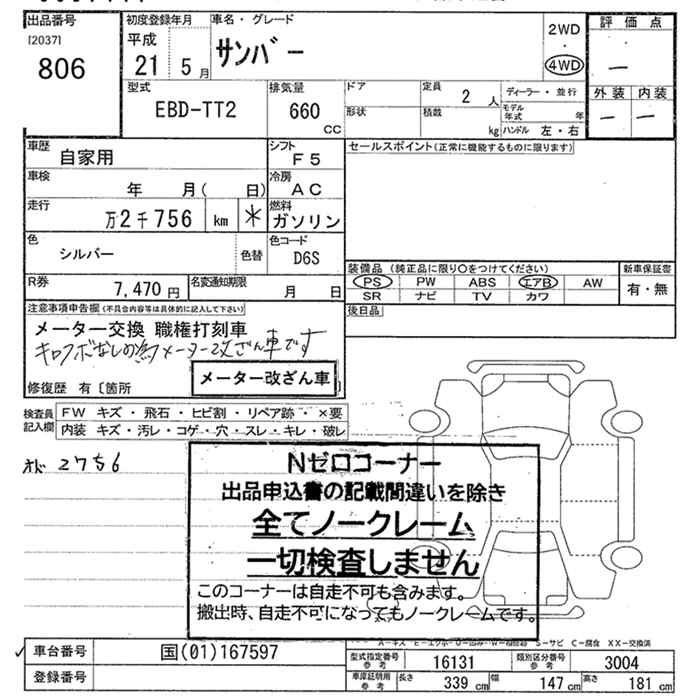 出品番号
[2037]
806
初度登録年月
平成
21 5 月
車名・グレード
サンバー
2WD
・
4WD
評価点
—
外装 内装
— —
型式
EBD-TT2
排気量
660
CC
ドア
定員
2 人
ディーラー・並行
形状
積載
kg
モデル年式 年
ハンドル 左・右
車歴
自家用
シフト
F5
セールスポイント(正常に機能するものに限ります)
車検
年 月( 日)
冷房
AC
走行
万2千756 km *
燃料
ガソリン
色
シルバー
色替
色コード
D6S
装備品 (純正品に限り○をつけてください)
PS PW ABS エアB AW
SR ナビ TV カワ
新車保証書
有・無
R券
7,470 円
名変通知期限
月 日
後日品
注意事項申告欄(不具合内容等は具体的に記入して下さい)
メーター交換 職権打刻車
キロフボなしの為メーター改ざん車です
メーター改ざん車
修復歴 有〔箇所
検査員記入欄
FW キズ・飛石・ヒビ割・リペア跡・×要
内装 キズ・汚レ・コゲ・穴・スレ・キレ・破レ
2756
Nゼロコーナー
出品申込書の記載間違いを除き
全てノークレーム
一切検査しません
このコーナーは自走不可も含みます。
搬出時、自走不可になってもノークレームです。
S-サビ C-腐食 XX-交換済
車台番号
国(01)167597
登録番号
型式指定番号 参考
16131
類別区分番号 参考
3004
車庫証明用 参考
長さ 339 cm
幅 147 cm
高さ 181 cm